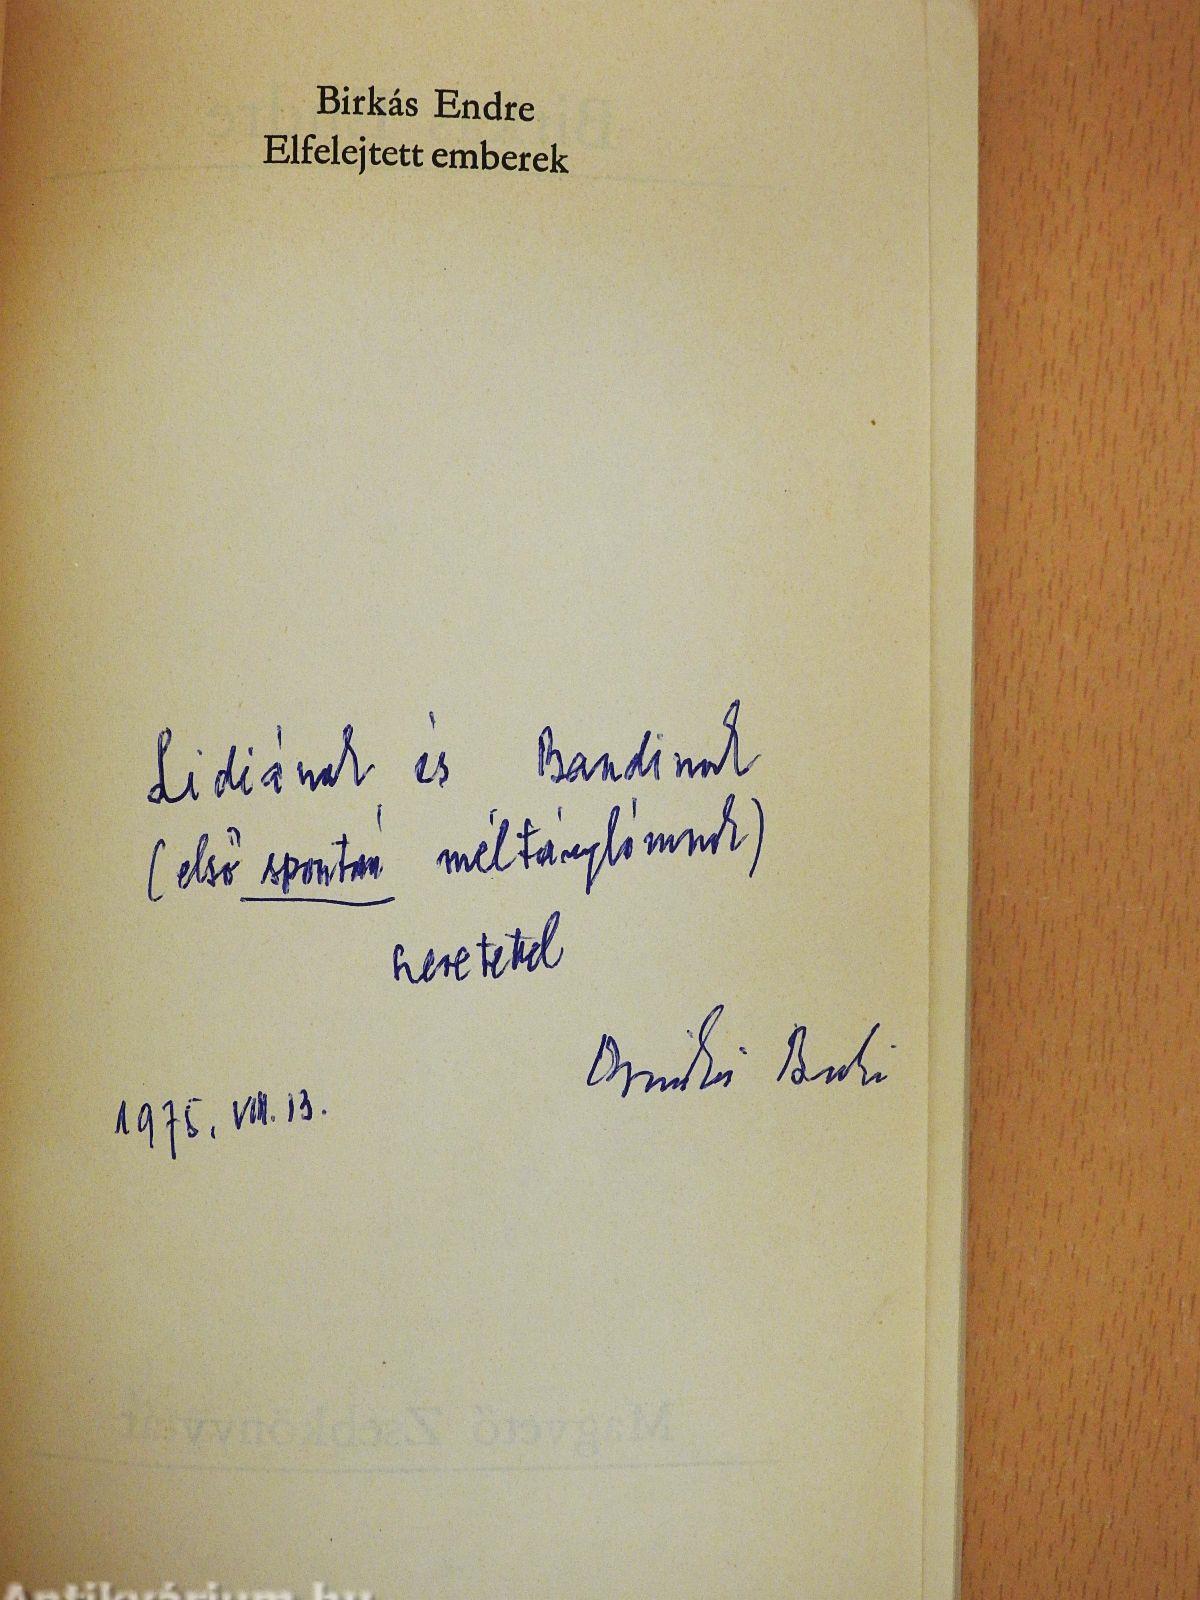 Birkás Endre
Elfelejtett emberek
Lidiának és Bandinak
(első spontán méltánylómnak)
szeretettel
1975. VIII. 13.
Magvető Zsebkönyvtár
Antikvárium.hu